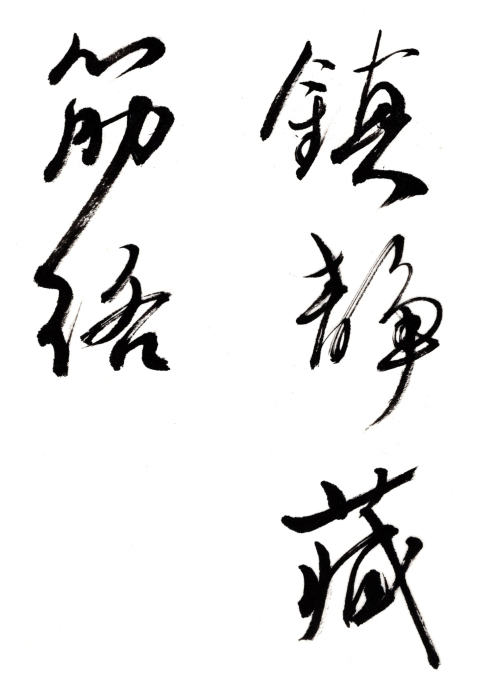 鎮静藏
筋络